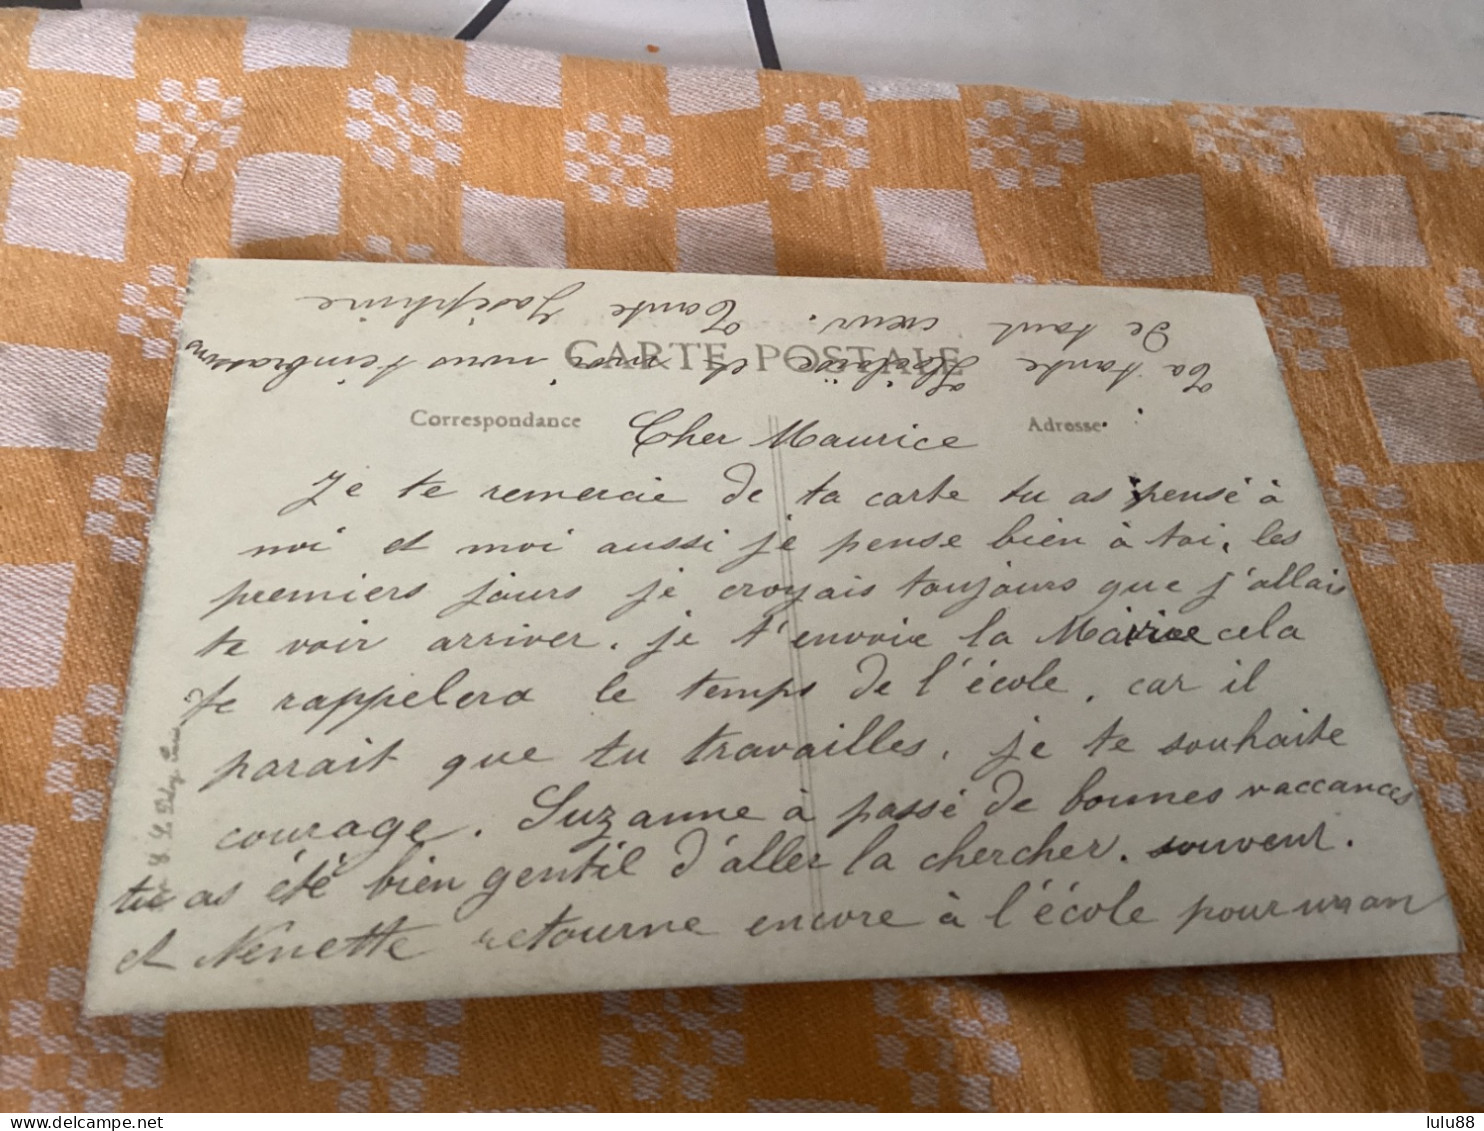 CARTE POSTALE
Correspondance
Adresse
Cher Maurice
Je te remercie de ta carte tu as pensé à
moi et moi aussi je pense bien à toi, les
premiers jours je croyais toujours que j'allais
te voir arriver. je t'envoie la Mairie cela
te rappelera le temps de l'école, car il
parait que tu travailles, je te souhaite
courage. Suzanne à passé de bonnes vaccances
tu as été bien gentil d'aller la chercher. souvent.
et Nenette retourne encore à l'école pour un an
Ta tante et moi nous t'embrassons
De tout cœur. Tante Joséphine
delcampe.net
lulu88